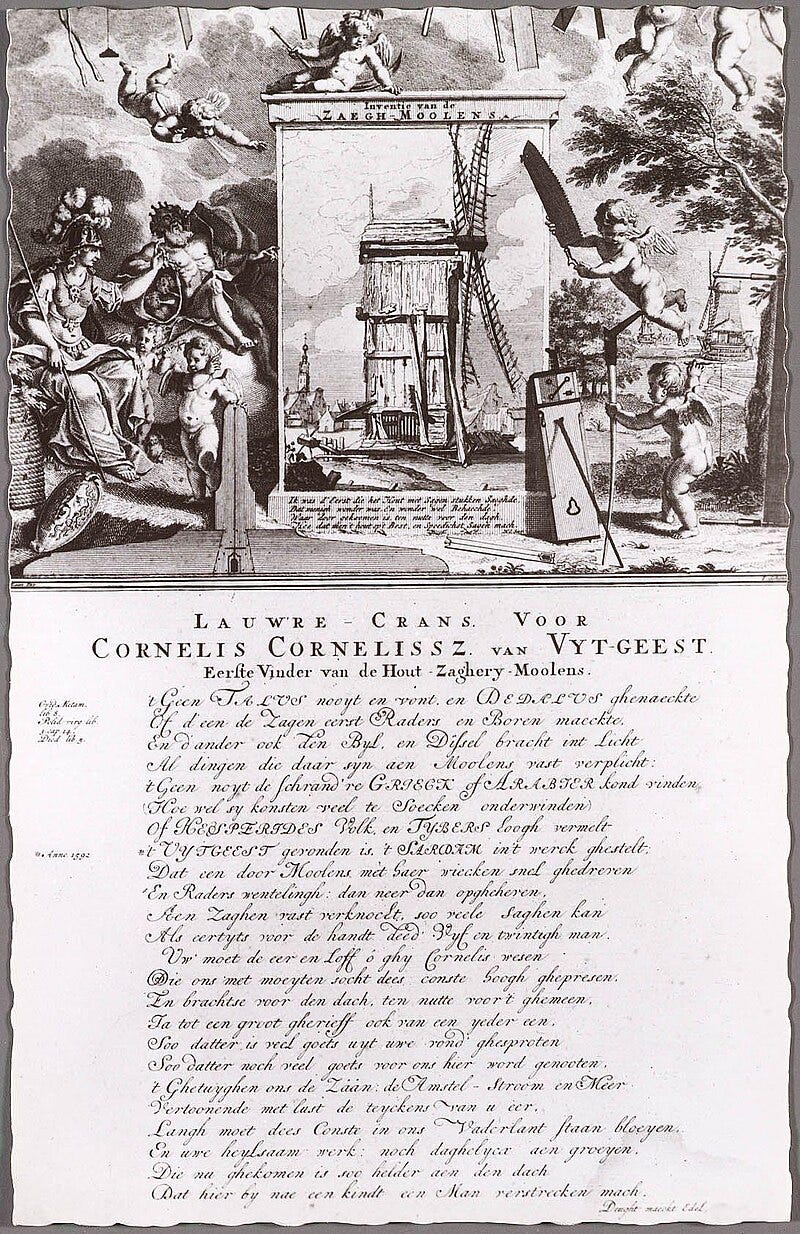 Inventie van de
ZAEGH-MOOLENS.
Ik was d'Eerst die het Hout met Sagen stukken Saeghde
Dat menigh wonder was En wonder wel Behaechde
Waer door gekomen is ten nutte voor den dagh
LAUWRE-CRANS. VOOR
CORNELIS CORNELISSZ. VAN VYT-GEEST.
Eerste Vinder van de Hout-Zaghery-Moolens.
't Geen TALVS nooyt en vont, en DEDALVS ghenaeckte
Of d'een de Zagen eerst Raders en Boren maeckte,
En d'ander ook den Byl, en Dissel bracht int Licht
Al dingen die daar syn aen Moolens vast verplicht:
't Geen noyt de schrand're GRIECK of ARABIER kond vinden,
(Hoe wel sy konsten veel te Soecken onderwinden)
Of HESPERIDES Volk, en TYBERS hoogh vermelt
't VYTGEEST gevonden is, 't SARDAM in't werck ghestelt;
Dat een door Moolens met haer wiecken snel ghedreven
En Raders wentelingh: dan neer dan opgheheven,
Aen Zaghen vast verknocht, soo veele Saghen kan
Als eertyts voor de handt deed Vyf en twintigh man.
Uw moet de eer en Loff ó ghy Cornelis wesen
Die ons met moeyten socht dees conste hoogh ghepresen.
En brachtse voor den dach, ten nutte voor't ghemeen,
Ja tot een groot gherieff ook van een yeder een.
Soo datter is veel goets uyt uwe vond ghesproten
Soo datter noch veel goets voor ons hier word genooten.
't Ghetuyghen ons de Zaan: de Amstel-Stroom en Meer
Vertoonende met lust de teyckens van u eer.
Langh moet dees Conste in ons Vaderlant staan bloeyen.
En uwe heylsaam werk: noch daghelycx aen groeyen.
Die nu ghekomen is soo helder aen den dach
Dat hier by nae een kindt een Man verstrecken mach.
Deught maeckt Edel.
Ovid. Metam.
lib. 8.
Polid. virg. lib.
Anno. 1592